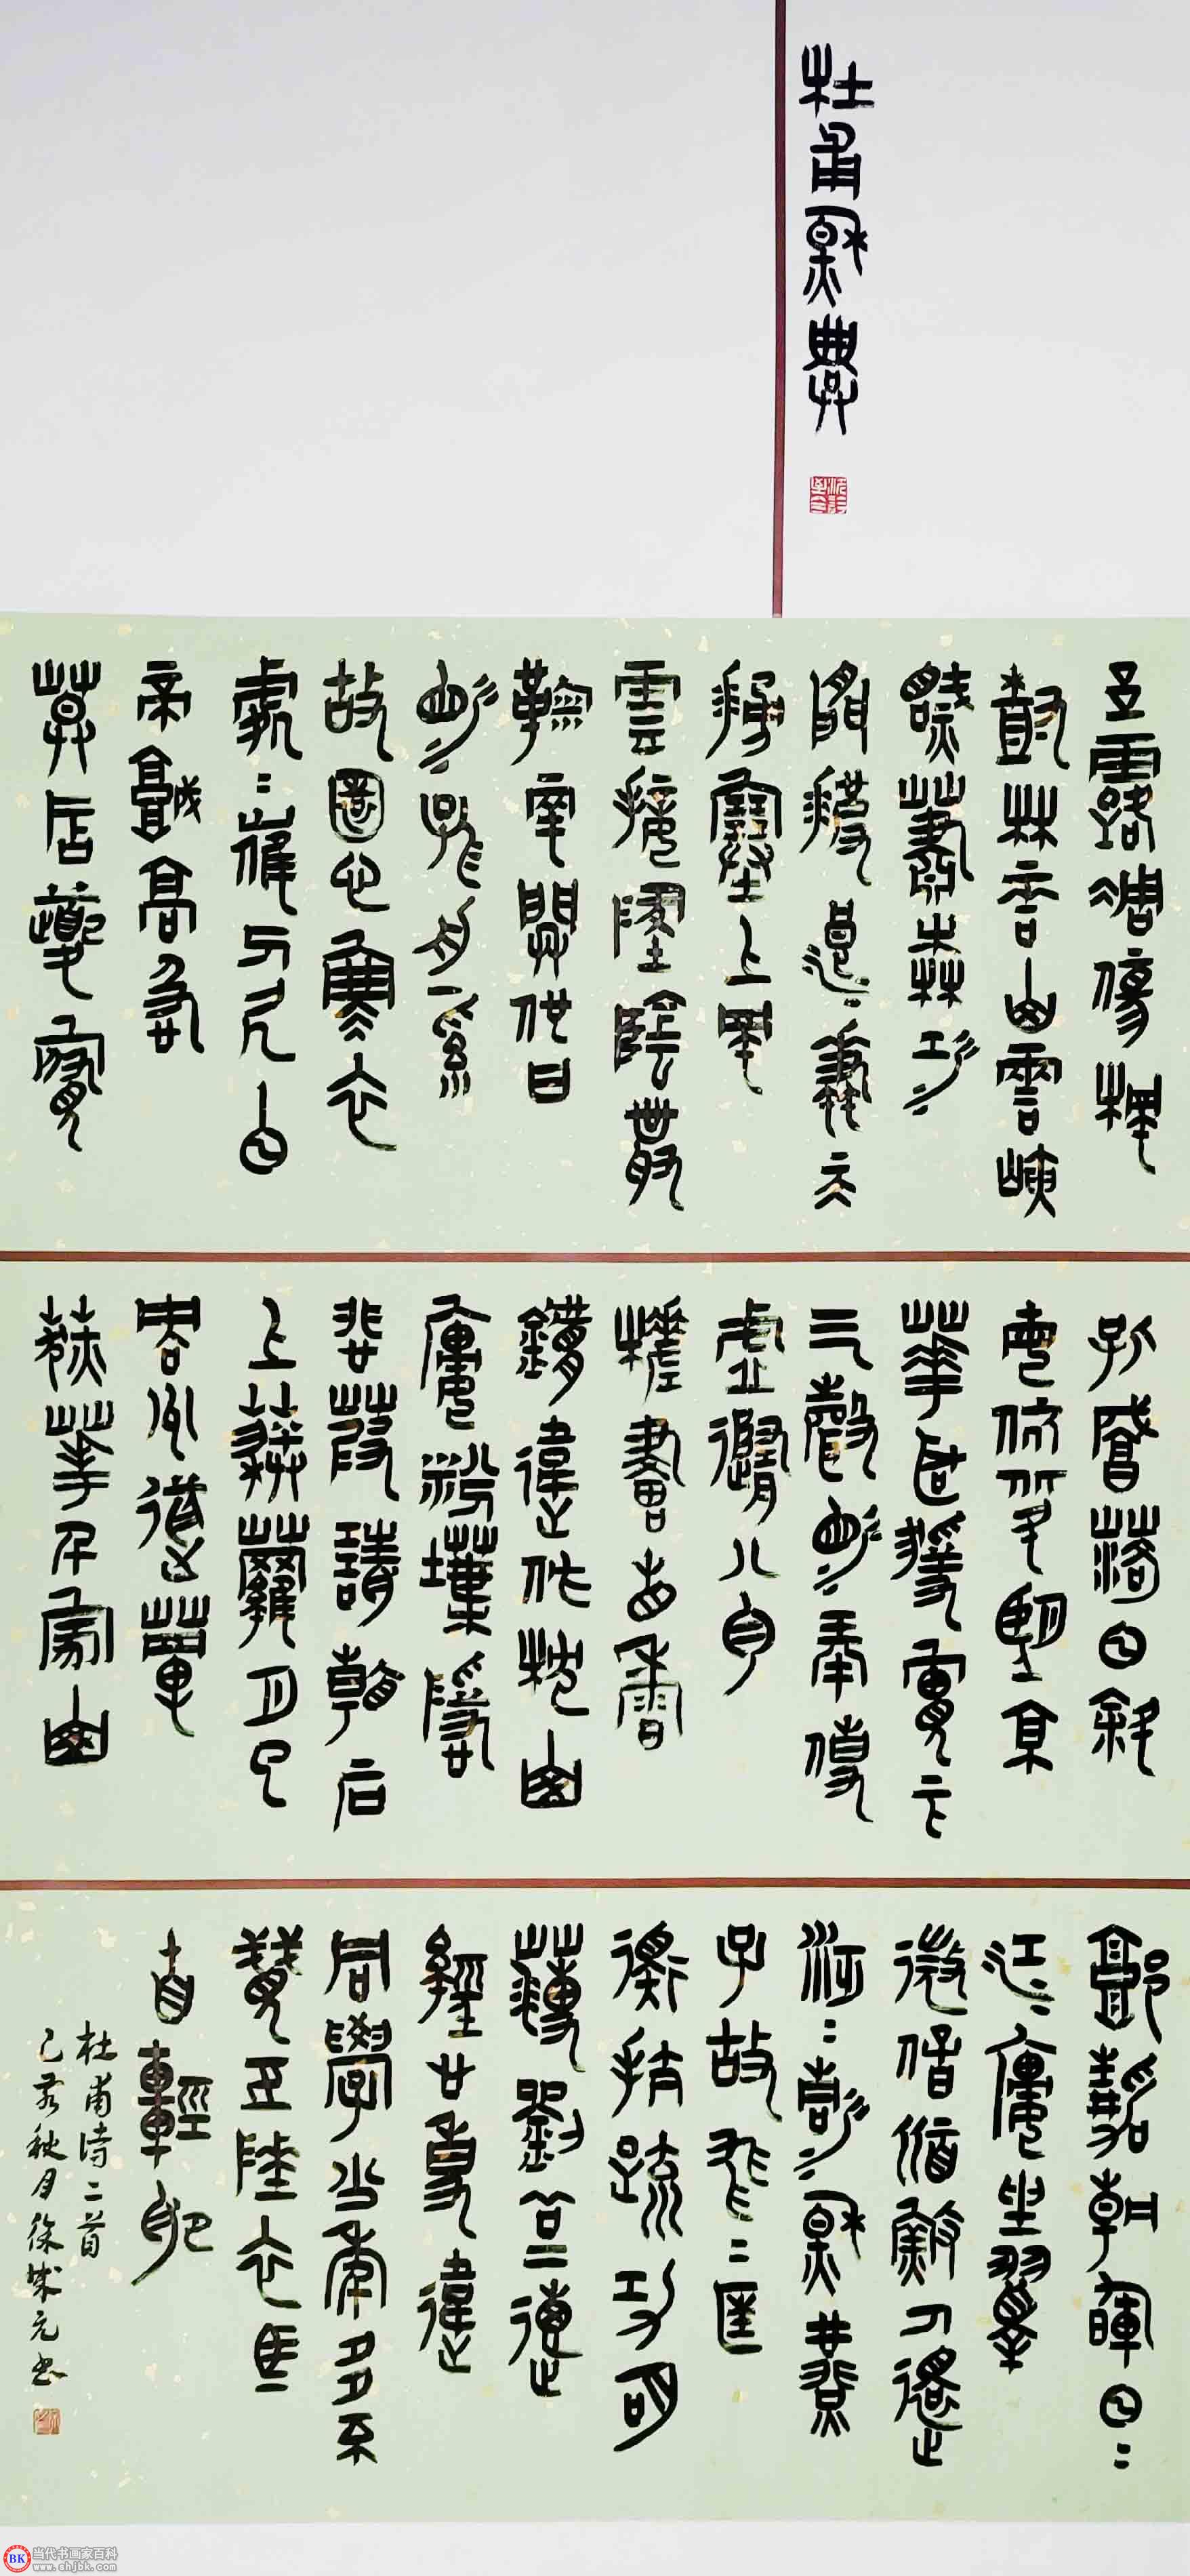 杜甫秋興
玉露凋傷楓
樹林巫山巫峽
氣蕭森江
間波浪兼天
湧塞上風
雲接地陰叢
菊兩開他日
淚孤舟一繫
故園心寒衣
處〻催刀尺白
帝城高急
暮砧夔府
孤城落日斜
每依北斗望京
華聽猿實下
三聲淚奉使
虛隨八月
槎畫省香
爐違伏枕山
樓粉堞隱
悲笳請看石
上藤蘿月已
映洲前蘆
荻花千家山
郭靜朝暉日〻
江樓坐翠
微信宿漁人還
泛〻清秋燕
子故飛〻匡
衡抗疏功名
薄劉向傳
經心事違
同學少年多不
賤五陵衣馬
自輕肥
杜甫詩二首
己亥秋月徐成元書
BK 当代书画家百科
www.shjbk.com